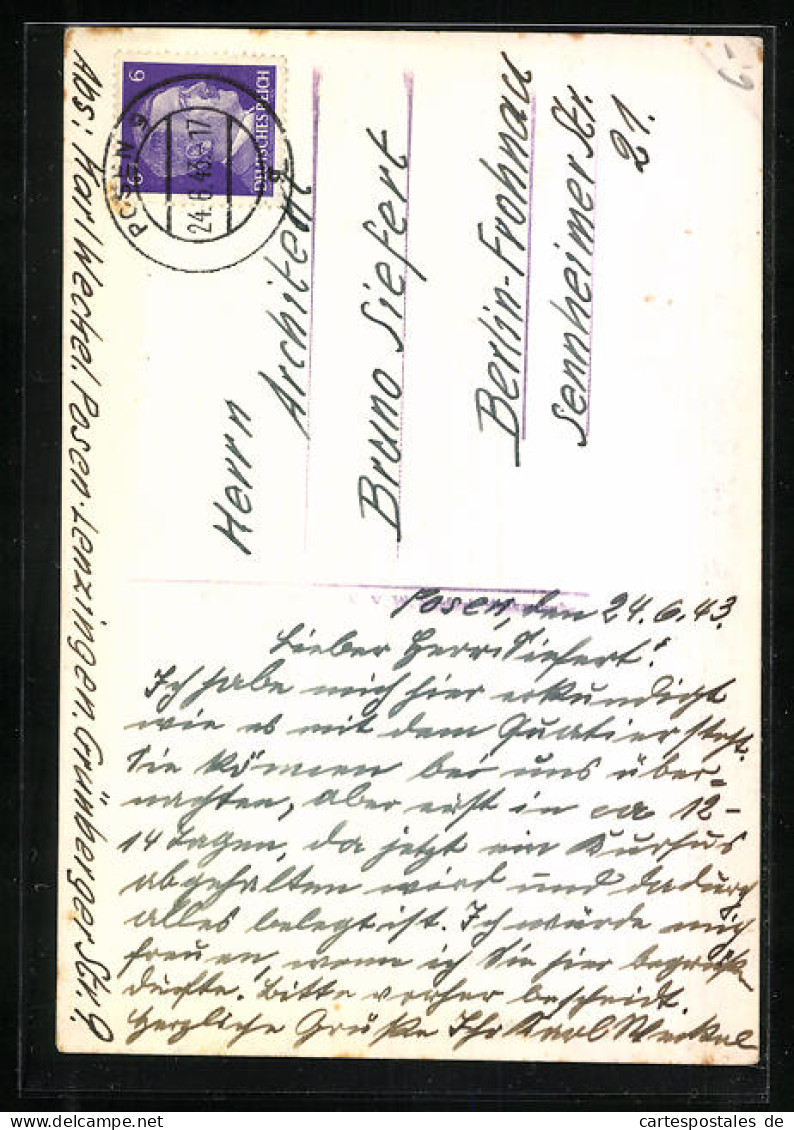 6.-
6 6
DEUTSCHES REICH
POSEN 9
24.6.43.-17
Herrn
Architekt
Bruno Siefert
Berlin-Frohnau
Sennheimer Str.
21.
Abs: Karl Weckel Posen-Lenzingen. Grünberger Str. 9.
Posen, den 24.6.43.
Lieber Herr Siefert!
Ich habe mich hier erkundigt
wie es mit dem Quatier steht.
Sie können bei uns über-
nachten, aber erst in ca 12-
14 Tagen, da jetzt ein Kursus
abgehalten wird und dadurch
alles belegt ist. Ich würde mich
freuen, wenn ich Sie hier begrüßen
dürfte. Bitte vorher bescheidt.
Herzliche Grüße Ihr Karl Weckel
cartespostales-de
cartespostales.de